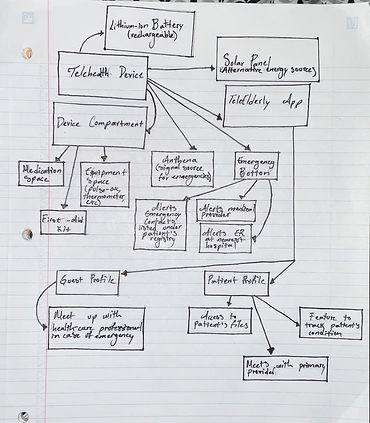 Lithium-Ion Battery
(rechargeable)
Solar Panel
(Alternative energy source)
Telehealth Device
TeleElderly App
Device Compartment
Medication
Space
Equipment
Space
(pulse-ox,
thermometer,
etc)
First-Aid
Kit
Anthena
(signal source
for emergencies)
Emergency
Bottom
Alerts
Emergency
Contacts
listed under
patient's
registry
Alerts medical
provider
Alerts ER
at nearest
hospital
Guest Profile
Meet up with
health-care professional
in case of emergency
Patient Profile
Access to
Patient's Files
Meets with primary
provider
Feature to
track patient's
condition